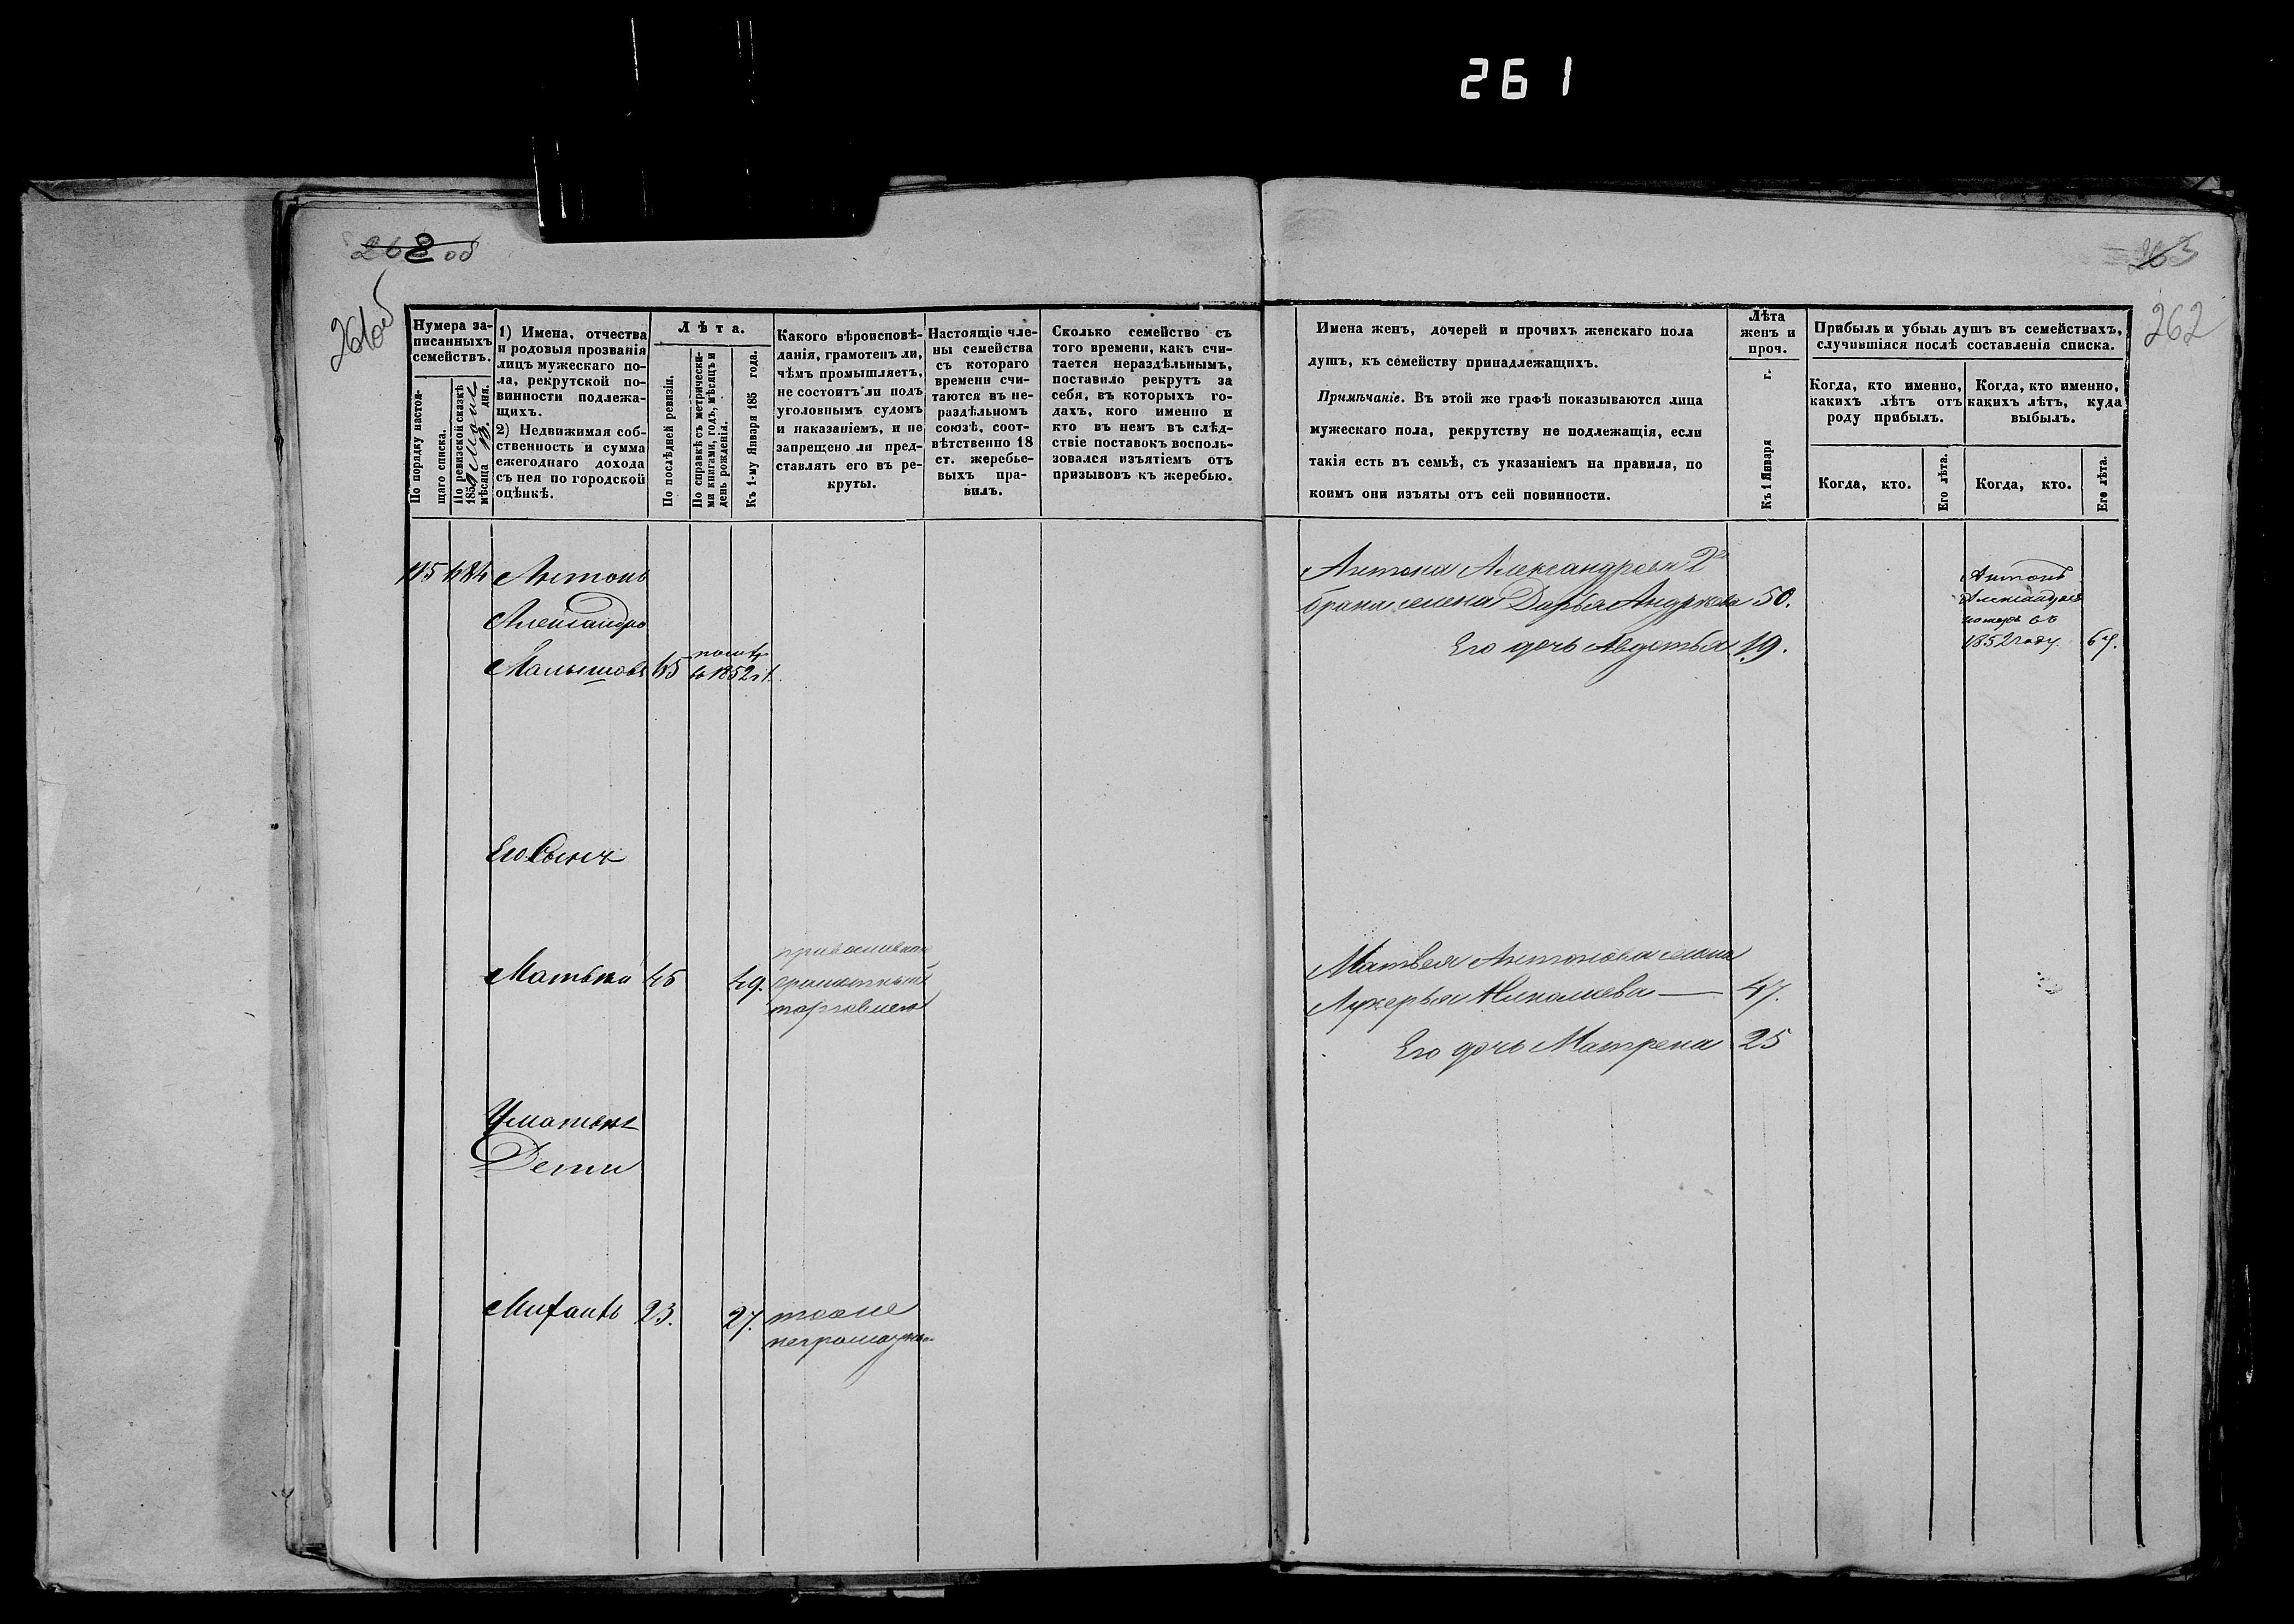 261
262 об
261 об
263
262
Нумера за-
писанныхъ
семействъ.
По порядку настоя-
щаго списка.
По ревизской сказкѣ
185
мѣсяца 13. дня.
1) Имена, отчества
и родовыя прозванія
лицъ мужескаго по-
ла, рекрутской по-
винности подлежа-
щихъ.
2) Недвижимая соб-
ственность и сумма
ежегоднаго дохода
съ нея по городской
оцѣнкѣ.
Лѣта.
По послѣдней ревизіи.
По справкѣ съ метрически-
ми книгами, годъ, мѣсяцъ и
день рожденія.
Къ 1-му Января 185 года.
Какого вѣроисповѣ-
данія, грамотенъ ли,
чѣмъ промышляетъ,
не состоитъ ли подъ
уголовнымъ судомъ
и наказаніемъ, и не
запрещено ли пред-
ставлять его въ ре-
круты.
Настоящіе чле-
ны семейства
съ котораго
времени счи-
таются въ не-
раздѣльномъ
союзѣ, соот-
вѣтственно 18
ст. жеребье-
выхъ пра-
вилъ.
Сколько семейство съ
того времени, какъ счи-
тается нераздѣльнымъ,
поставило рекрутъ за
себя, въ которыхъ го-
дахъ, кого именно и
кто въ немъ въ слѣд-
ствіе поставокъ восполь-
зовался изъятіемъ отъ
призывовъ къ жеребью.
Имена женъ, дочерей и прочихъ женскаго пола
душъ, къ семейству принадлежащихъ.
Примѣчаніе. Въ этой же графѣ показываются лица
мужескаго пола, рекрутству не подлежащія, если
такія есть въ семьѣ, съ указаніемъ на правила, по
коимъ они изъяты отъ сей повинности.
Лѣта
женъ и
проч.
Къ 1 Января г.
Прибыль и убыль душъ въ семействахъ,
случившіяся послѣ составленія списка.
Когда, кто именно,
какихъ лѣтъ отъ
роду прибылъ.
Когда, кто именно,
какихъ лѣтъ, куда
выбылъ.
Когда, кто.
Его лѣта.
Когда, кто.
Его лѣта.
Антонъ
Александро
Малышовъ 65
въ 1852 г.
Его Сынъ
Матвей 45 49.
грамотный
торговлею
Дети
23. 27. тоже
Антона Александрова 2го
брака жена Дарья Андреева 50.
Его дочь Авдотья 19.
Матвея Антонова жена
Лукерья Николаева 47.
Его дочь Матрена 25
Антонъ
Александровъ
померъ въ
1852 году. 67.